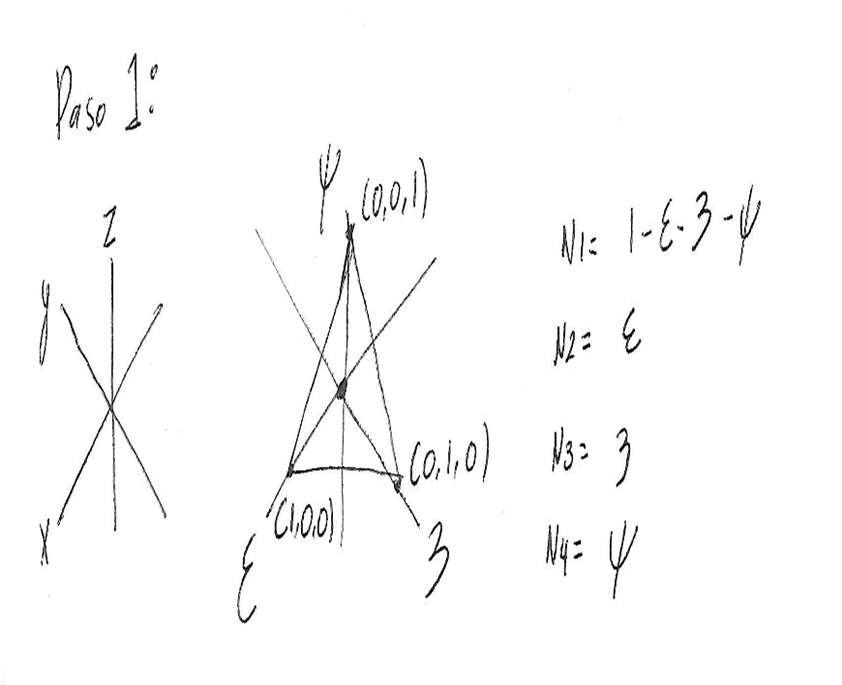 Paso 1:
z
y
x
ψ (0,0,1)
(0,1,0)
(1,0,0)
ε
3
N1= 1-ε-3-ψ
N2= ε
N3= 3
N4= ψ